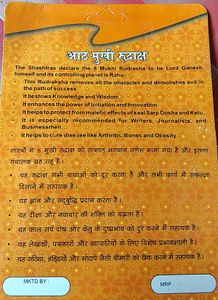 आठ मुखी रूद्राक्ष
The Shashtras declare the 8 Mukhi Rudrasha to be Lord Ganesh
himself and its controlling planet is Rahu.
This Rudraksha removes all the obstacles and demolishes evil in
the path of success.
It bestows Knowledge and Wisdom.
It enhances the power of Initiation and Innovation.
It helps to protect from malefic effects of kaal Sarp Dosha and Ketu.
It is especially recommended for Writers, Journalists, and
Businessmen.
It helps to cure disease like Arthritis, Bones and Obesity.
शास्त्रों में 8 मुखी रूद्राक्ष को साक्षात् भगवान गणेश माना गया है और इसका
संचालक ग्रह राहू है।
यह रूद्राक्ष सभी बाधाओं को दूर करता है और सभी कार्य में सफलता
दिलाने में सहायक है।
यह ज्ञान और सद्बुद्धि प्रदान करता है।
यह दीक्षा और नवाचार की शक्ति को बढ़ाता है।
यह काल सर्प दोष और केतु के दुष्प्रभाव को दूर करने में सहायक है।
यह लेखकों, पत्रकारों और व्यापारियों के लिए विशेष प्रभावशाली है।
यह गठिया, हड्डियों और मोटापे जैसी बीमारी को ठीक करने में सहायक है।
MKTD BY :
MRP :